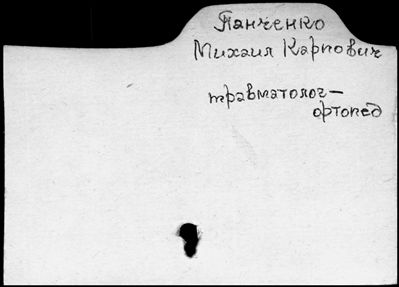 Панченко
Михаил Карпович
травматолог-
ортопед